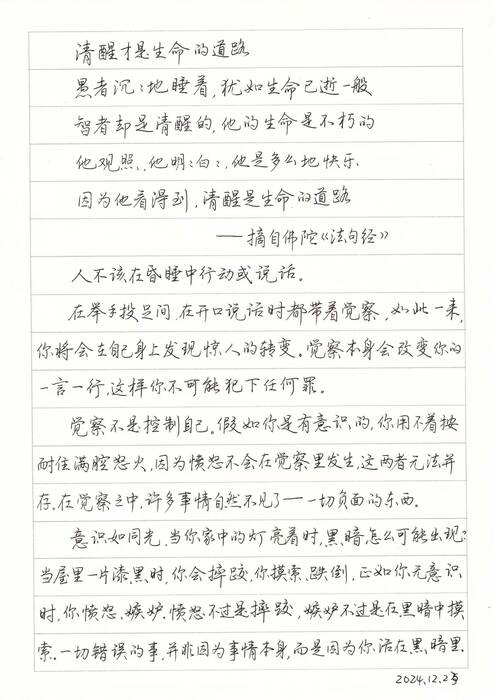 清醒才是生命的道路
愚者沉:地睡着,犹如生命已逝一般
智者却是清醒的,他的生命是不朽的
他观照,他明:白:,他是多么地快乐.
因为他看得到,清醒是生命的道路
——摘自佛陀《法句经》
人不该在昏睡中行动或说话。
在举手投足间,在开口说话时都带着觉察,如此一来,
你将会在自己身上发现惊人的转变。觉察本身会改变你的
一言一行,这样你不可能犯下任何罪。
觉察不是控制自己。假如你是有意识的,你用不着按
耐住满腔怒火,因为愤怒不会在觉察里发生,这两者无法并
存.在觉察之中,许多事情自然不见了——一切负面的东西。
意识如同光,当你家中的灯亮着时,黑暗怎么可能出现?
当屋里一片漆黑时,你会摔跤,你摸索、跌倒,正如你无意识
时,你愤怒、嫉妒.愤怒不过是摔跤,嫉妒不过是在黑暗中摸
索.一切错误的事,并非因为事情本身,而是因为你活在黑暗里.
2024.12.25